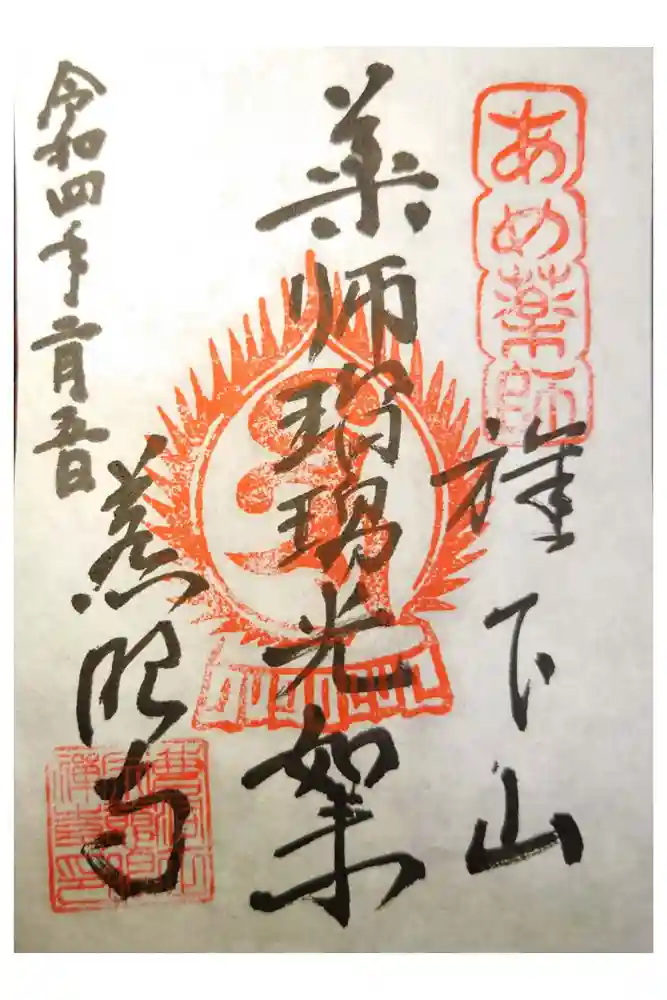 あめ薬師
下山
薬師瑠璃光如来
慈眼寺
令和四年二月五日